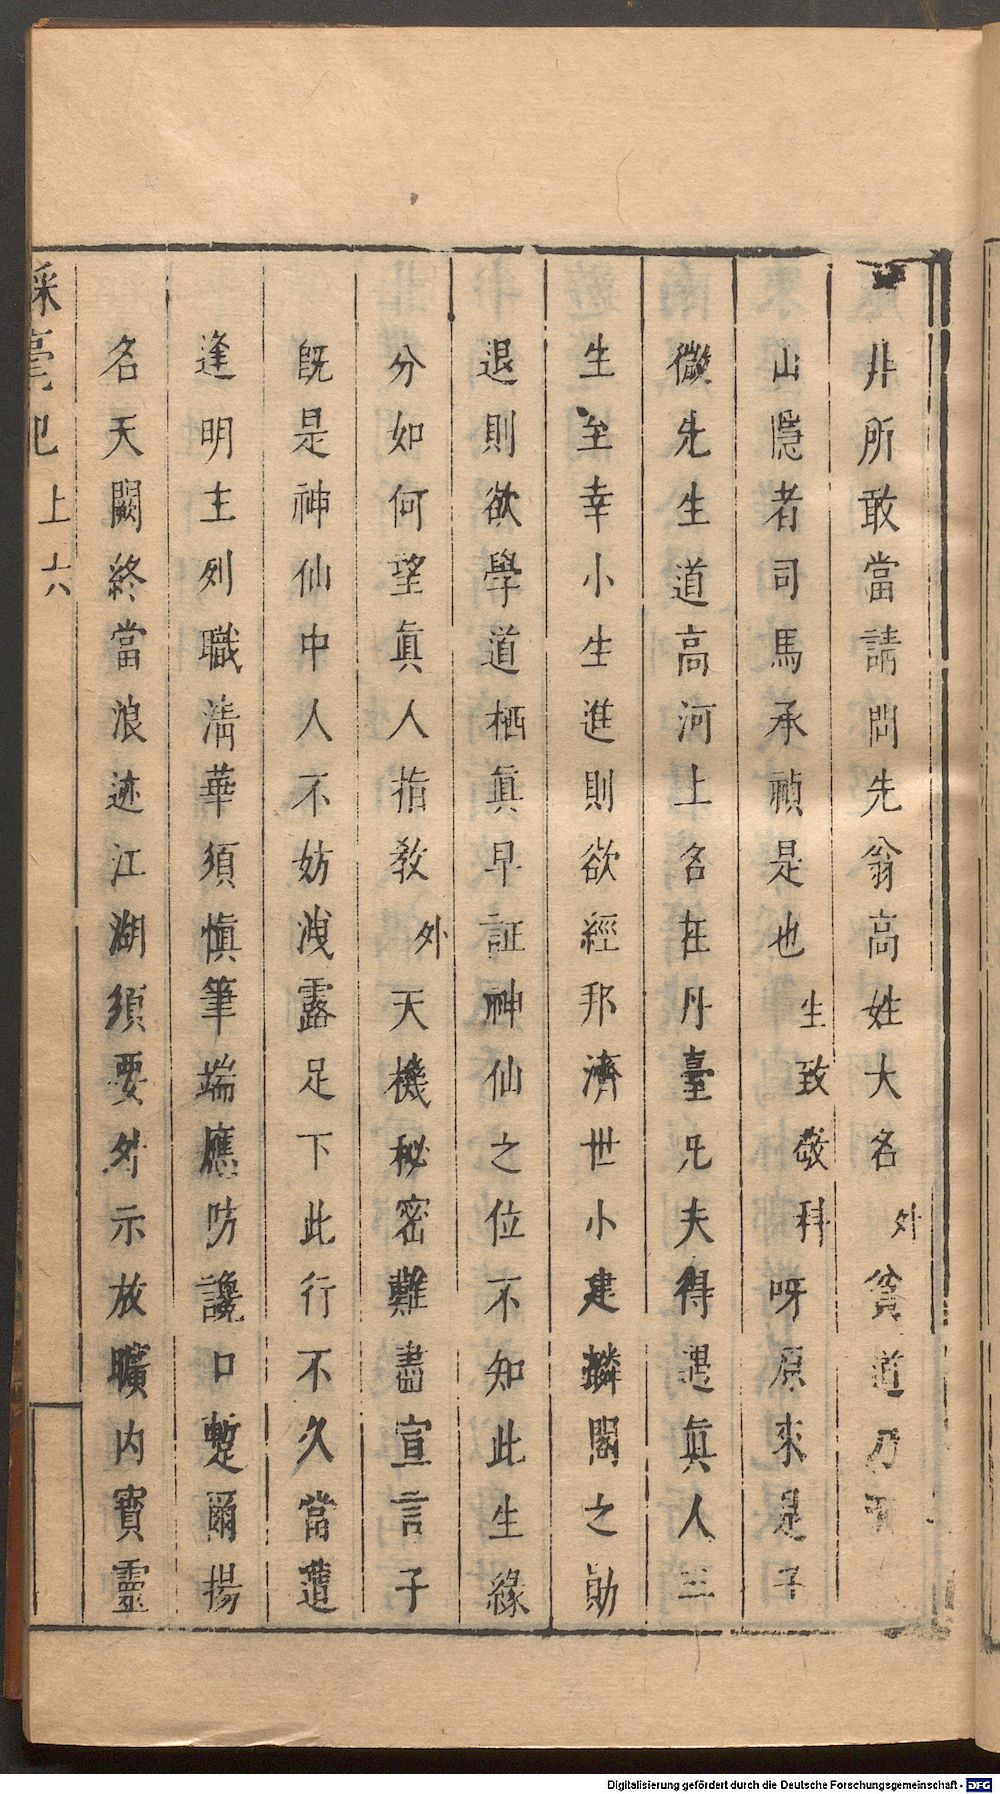 非所敢當請問先翁高姓大名外貧道乃天
山隱者司馬承禎是也生致敬科呀原來是子
微先生道高河上名在丹臺凡夫得遇眞人三
生至幸小生進則欲經邦濟世小建麟閣之勛
退則欲學道栖眞早証神仙之位不知此生緣
分如何望眞人指敎外天機秘密難盡宣言子
旣是神仙中人不妨洩露足下此行不久當遭
逢明主列職淸華須愼筆端應防讒口蹔爾揚
名天闕終當浪迹江湖須要外示放曠内寶靈
綵毫記 上 六
Digitalisierung gefördert durch die Deutsche Forschungsgemeinschaft - DFG